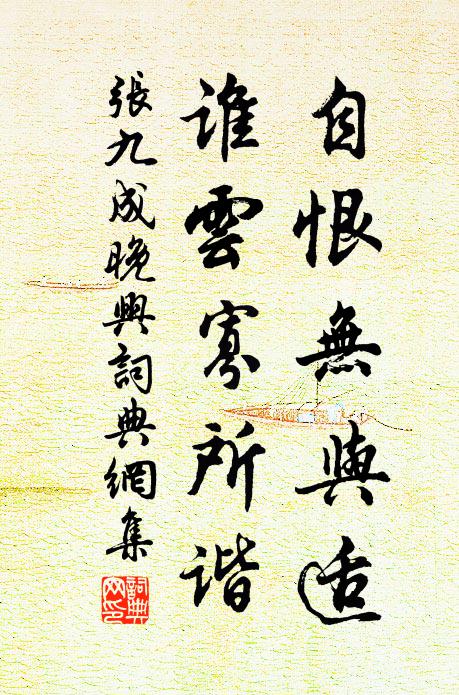 自恨無與適
誰雲寡所諧
張九成晚興詞典網集
詞典網印